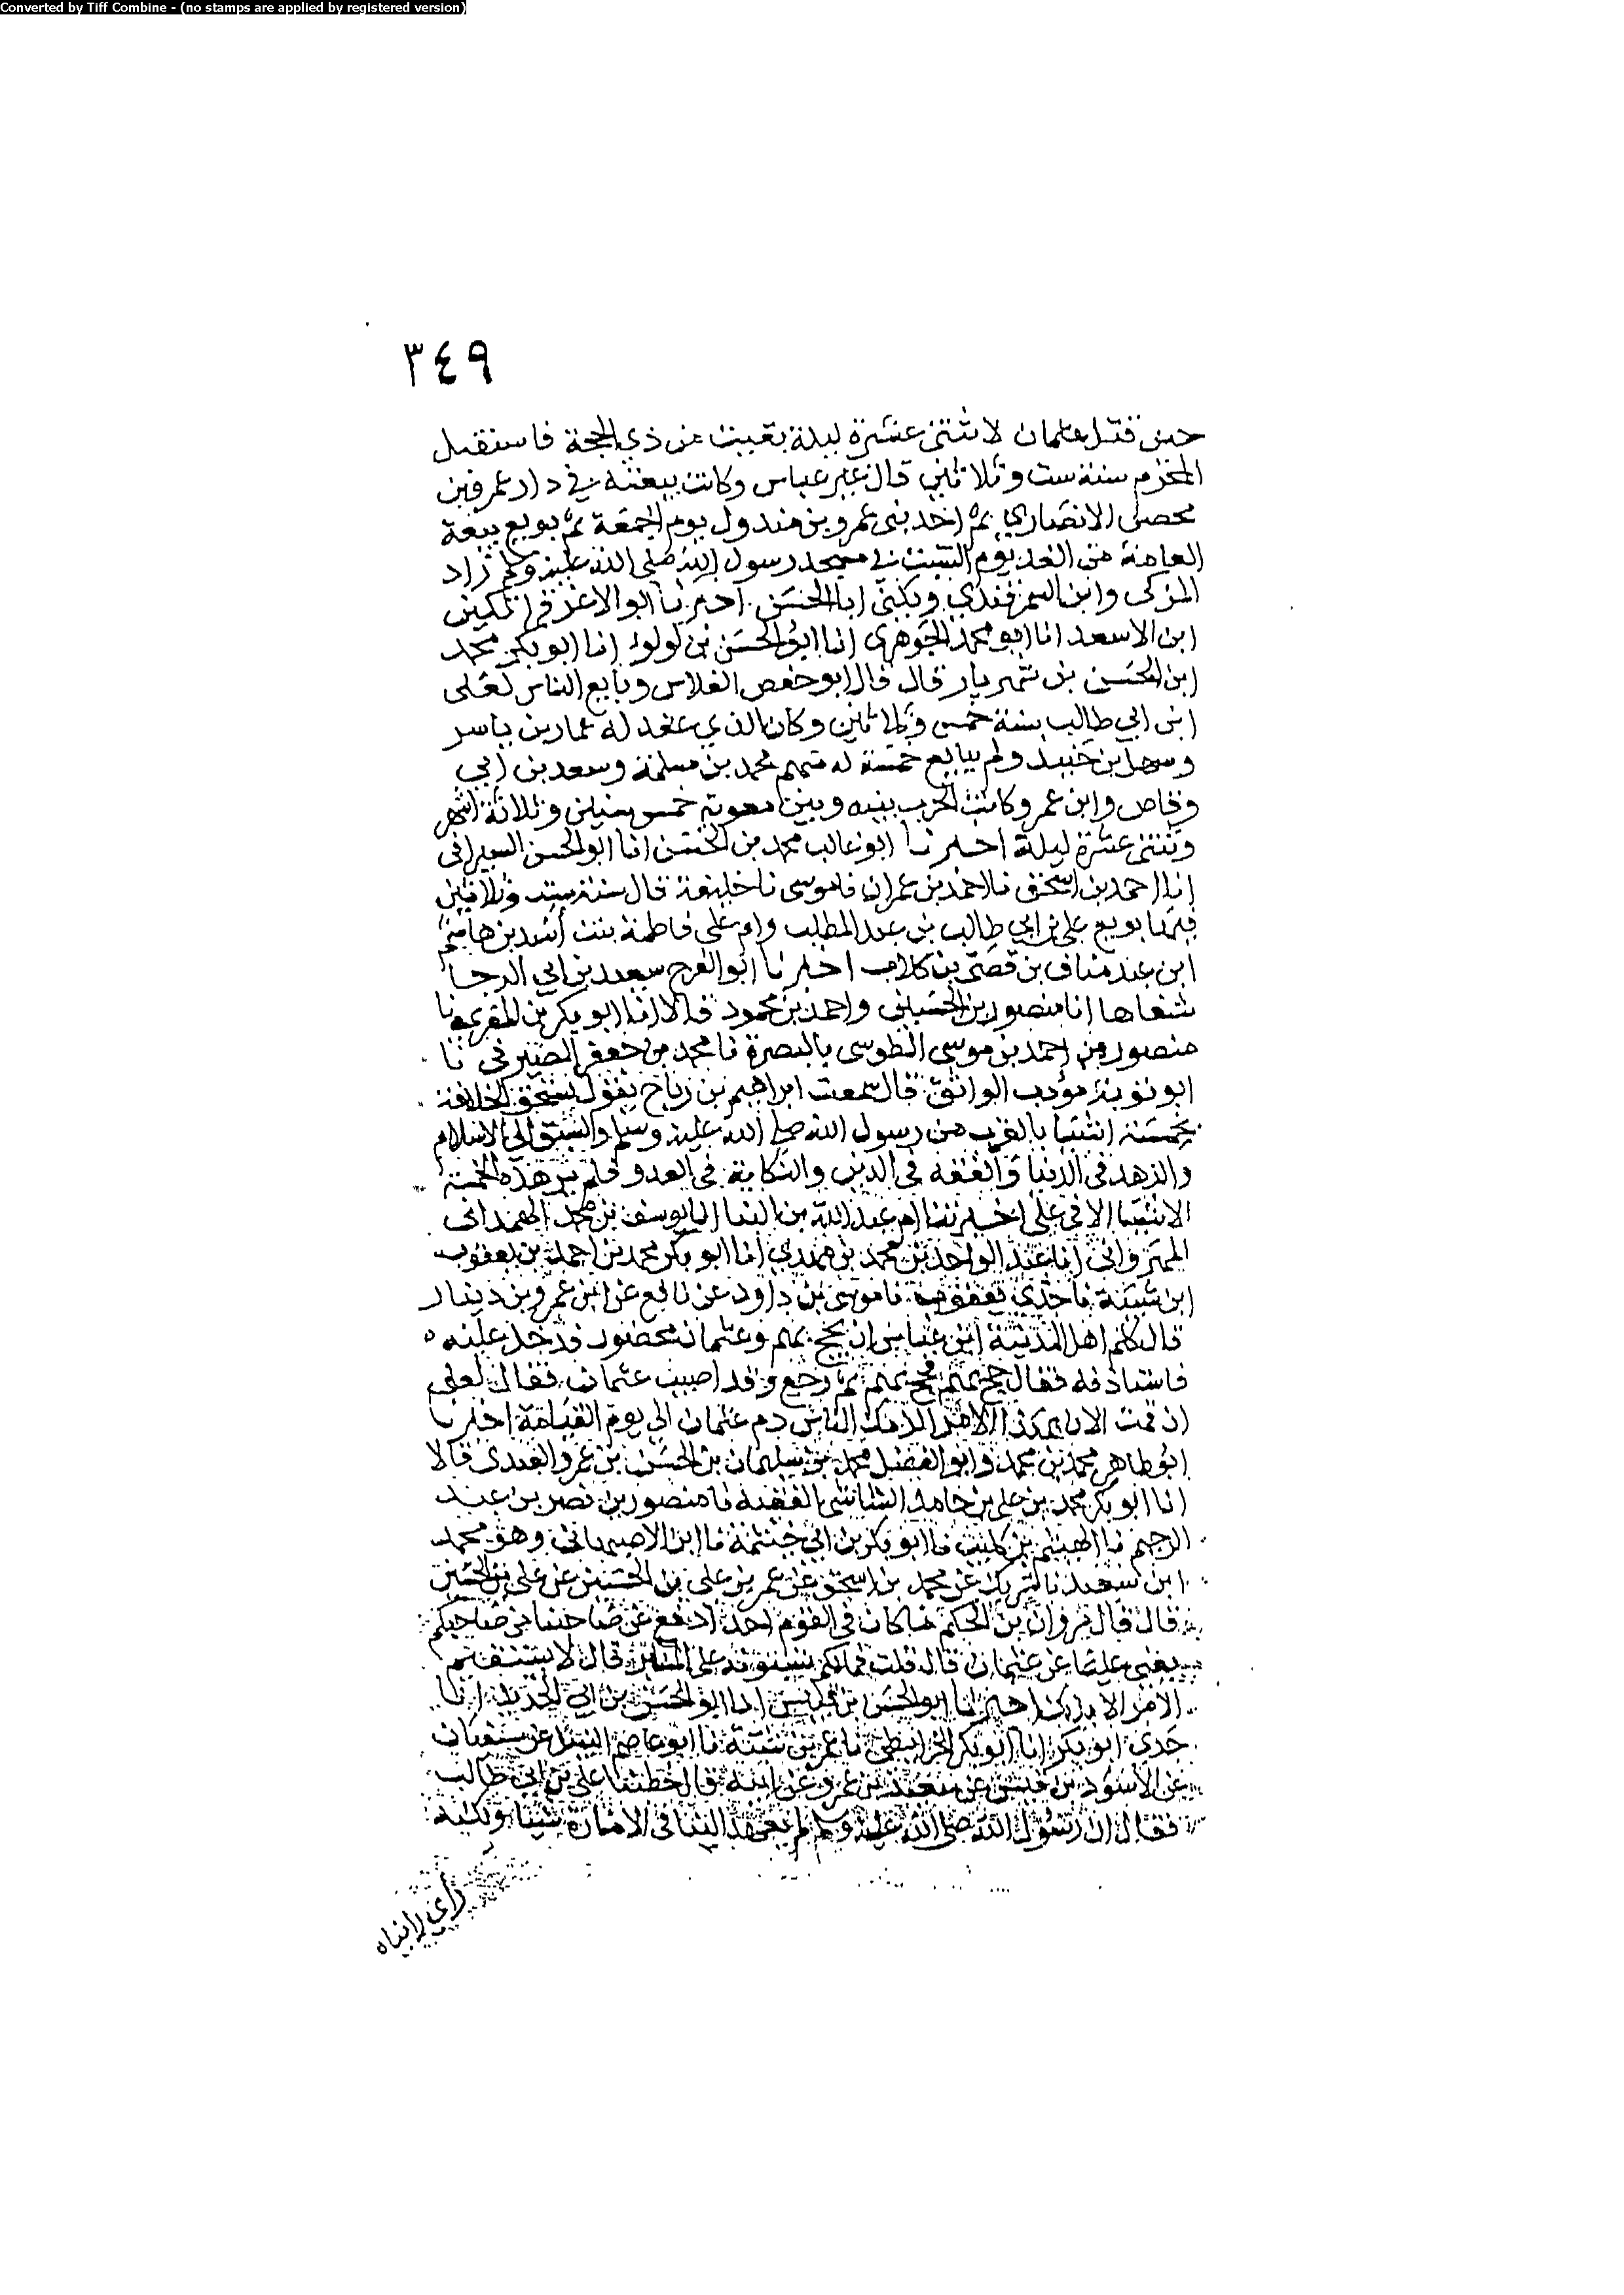 Converted by Tiff Combine - (no stamps are applied by registered version)
٣٤٩
حين قتل عثمان لاثنتى عشرة ليلة بقيت من ذي الحجة فاستقبل
المحرم سنة ست وثلاثين قال غير عباس وكانت بيعته في دار عمرو بن
محصن الانصاري ثم احد بنى عمرو بن مبذول يوم الجمعة ثم بويع بيعة
العامة من الغد يوم السبت في مسجد رسول الله صلى الله عليه وسلم زاد
المزكى وابن السمرقندي ويكنى ابا الحسن اخبرنا ابو الاعز قراتكين
ابن الاسعد انا ابو محمد الجوهرى انا ابو الحسن بن لولو انا ابو بكر محمد
ابن الحسين بن شهريار قال قال ابو حفص الفلاس وبايع الناس لعلى
ابن ابي طالب سنة خمس وثلاثين وكان الذي عقد له عمار بن ياسر
وسهل بن حنيف ولم يبايع خمسة له منهم محمد بن مسلمة وسعد بن ابي
وقاص وابن عمر وكانت الحرب بينه وبين معوية خمس سنين وثلاثة اشهر
وثنتى عشرة ليلة اخبرنا ابو غالب محمد بن الحسن انا ابو الحسن السيرافى
انا احمد بن اسحق نا احمد بن عمران نا موسى نا خليفة قال سنة ست وثلاثين
فيها بويع على بن ابي طالب بن عبد المطلب وام على فاطمة بنت اسد بن هاشم
ابن عبد مناف بن قصى بن كلاب اخبرنا ابو الفرج سعيد بن ابي الرجا
شفاها انا منصور بن الحسين واحمد بن محمود قالا انا ابو بكر بن المقرى نا
منصور بن احمد بن موسى الطوسى بالبصرة نا محمد بن جعفر الصيرفى نا
ابو توبة مؤدب الواثق قال سمعت ابراهيم بن رباح يقول يستحق الخلافة
بخمسة اشيا بالقرب من رسول الله صلى الله عليه وسلم والسبق الى الاسلام
والزهد في الدنيا والفقه في الدين والنكاية في العدو فلم تر هذه الخمسة
الاشيا الا في على اخبرتنا ام عبد الله بن البنا انا يوسف بن محمد الهمدانى
المهروانى انا عبد الواحد بن محمد بن مهدي انا ابو بكر محمد بن احمد بن يعقوب
ابن شيبة نا جدي يعقوب نا موسى بن داود عن نافع عن ابن عمر وبن دينار
قال كلم اهل المدينة ابن عباس ان يحج بهم وعثمان محصور فدخل عليه
فاستاذنه فقال حج بهم فحج بهم ثم رجع وقد اصيب عثمان فقال لعلى
ان قمت الان بهذا الامر الزمك الناس دم عثمان الى يوم القيامة اخبرنا
ابو طاهر محمد بن محمد وابو الفضل محمد بن سليمان بن الحسن بن عمرو الفندى قالا
انا ابو بكر محمد بن على بن حامد الشاشى الفقيه نا منصور بن نصر بن عبد
الرحيم نا الهيثم بن كليب نا ابو بكر بن ابى خيثمة نا ابن الاصبهانى وهو محمد
ابن سعيد نا شريك عن محمد بن اسحق عن عمر بن على بن الحسين عن على بن الحسين
قال قال مروان بن الحكم ما كان في القوم احد ادفع عن صاحبنا من صاحبكم
يعنى عليا عن عثمان قال قلت فما لكم تسبونه على المنابر قال لا يستقيم
الامر الا بذلك اخبرنا ابو الحسن بن قبيس انا ابو الحسن بن ابي الحديد انا
جدى ابو بكر انا ابو بكر الخرايطى نا عمر بن شبة نا ابو عاصم النبيل عن سفيان
عن الاسود بن قيس عن سعيد بن عمرو عن ابيه قال خطبنا على بن ابي طالب
فقال ان رسول الله صلى الله عليه وسلم لم يعهد الينا فى الامارة شيئا ولكنه
راي رايناه